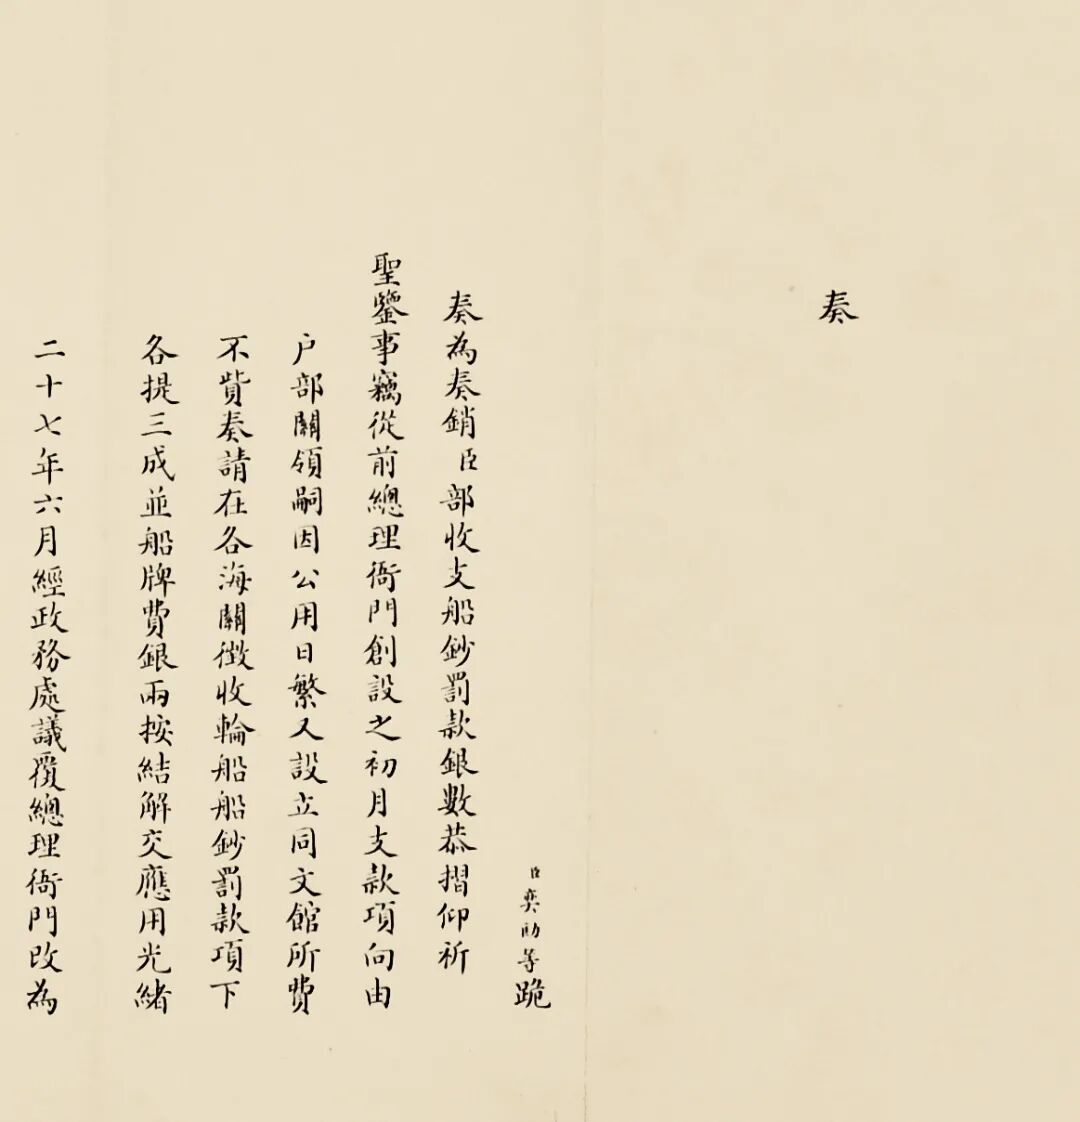 奏
臣奕劻等跪
奏為奏銷臣部收支船鈔罰款銀數恭摺仰祈
聖鑒事竊從前總理衙門創設之初月支款項向由
户部關領嗣因公用日繁又設立同文館所費
不貲奏請在各海關徵收輪船船鈔罰款項下
各提三成並船牌費銀兩按結解交應用光緒
二十七年六月經政務處議覆總理衙門改為